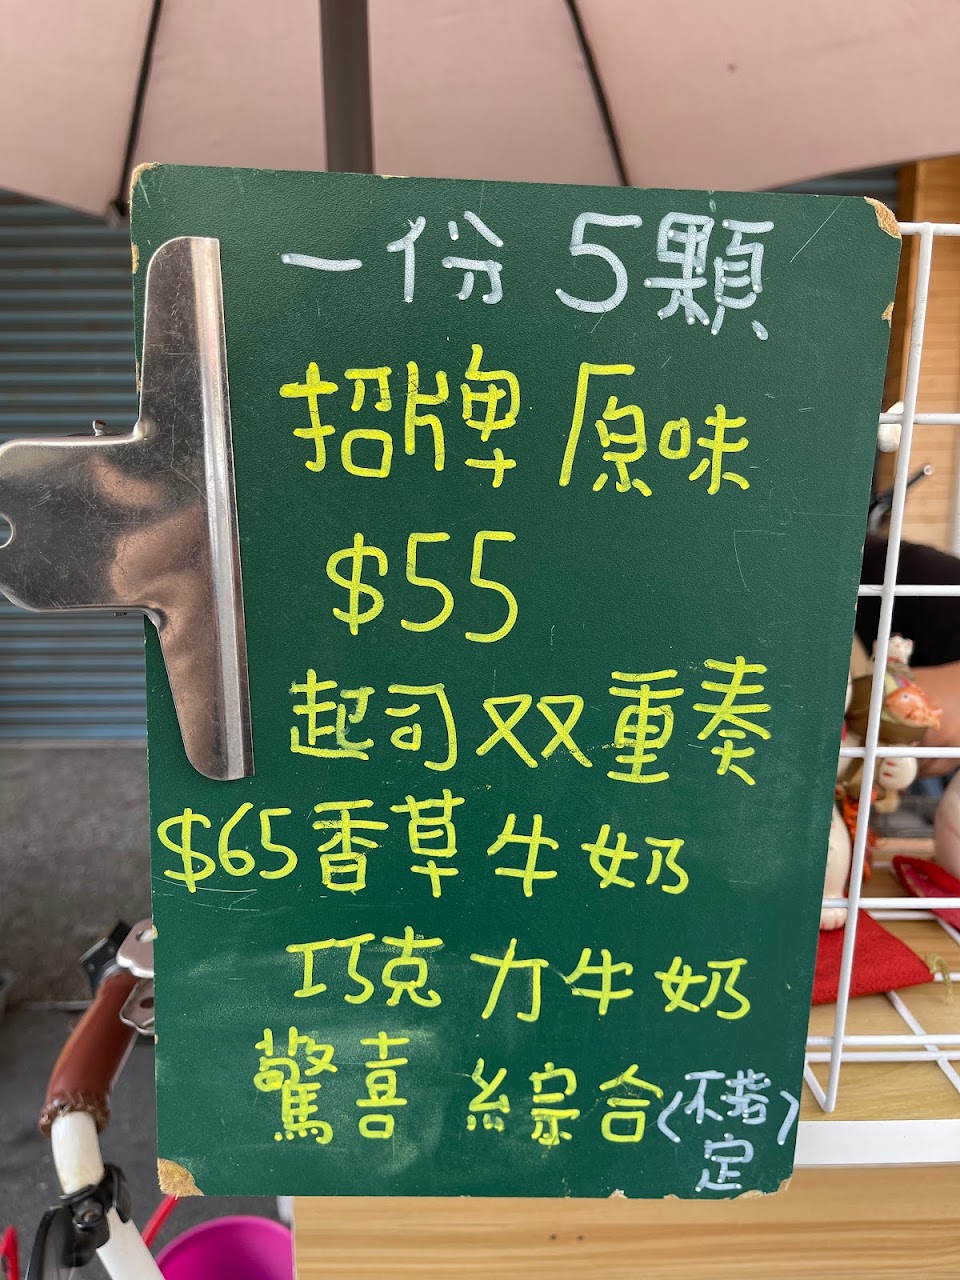 一份 5顆
招牌 原味
$55
起司双重奏
$65香草牛奶
巧克力牛奶
驚喜 綜合(不指定)